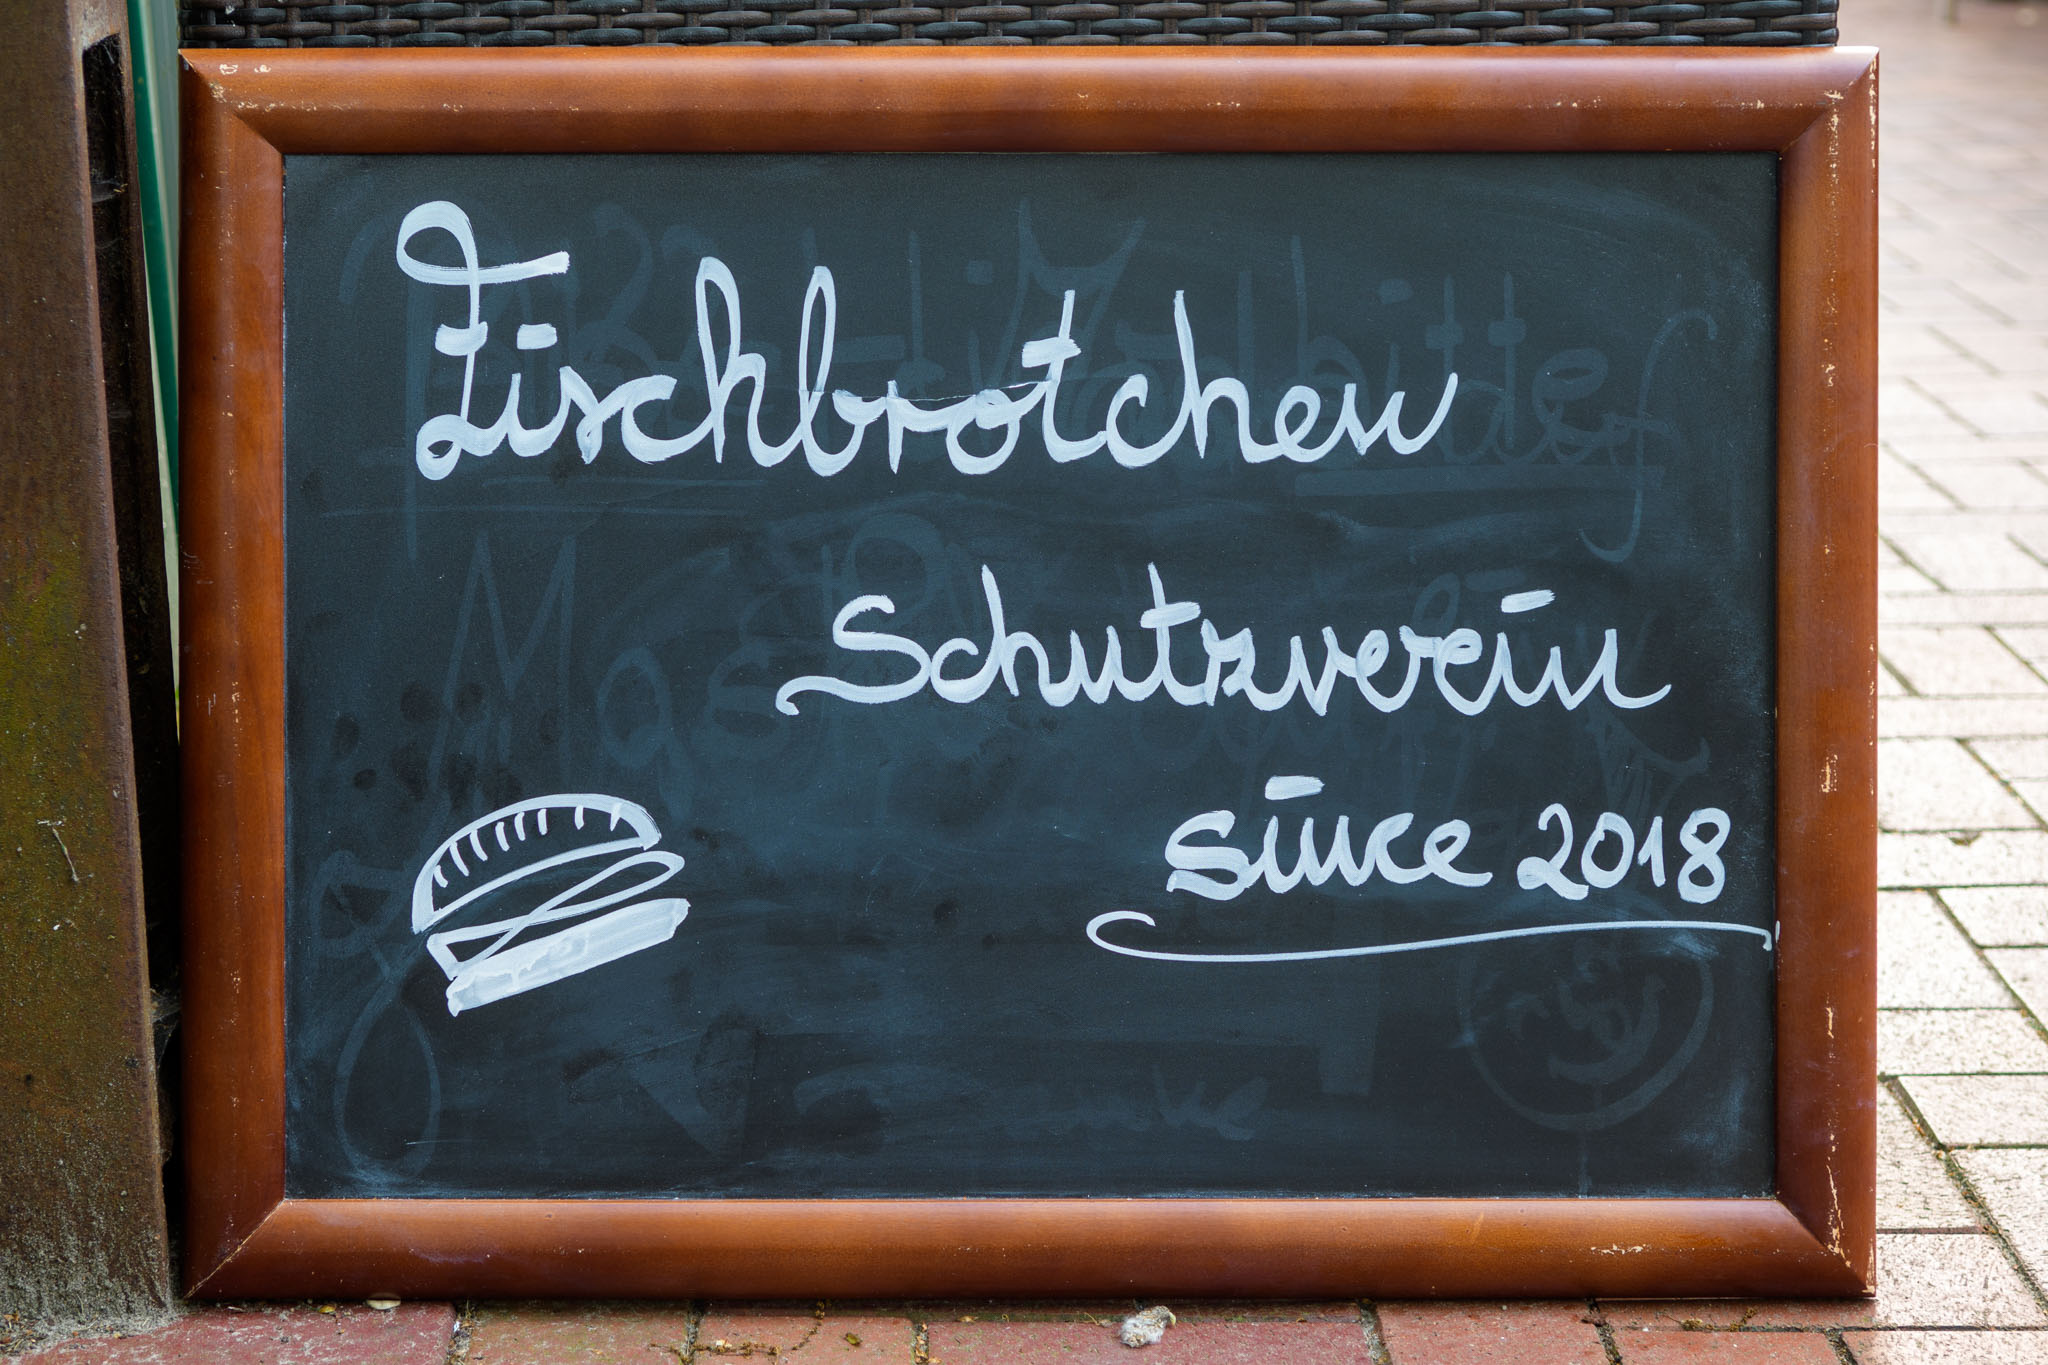 Fischbrötchen
Schutzverein
since 2018